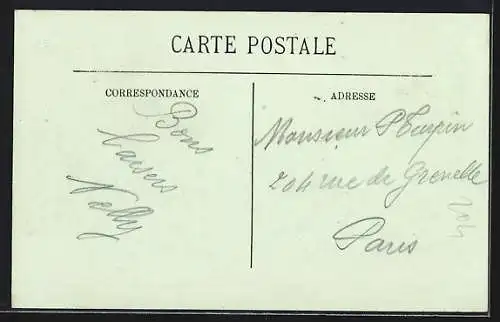 CARTE POSTALE
CORRESPONDANCE
ADRESSE
Bons
baisers
Nelly
Monsieur P Turpin
204 rue de Grenelle
Paris
204